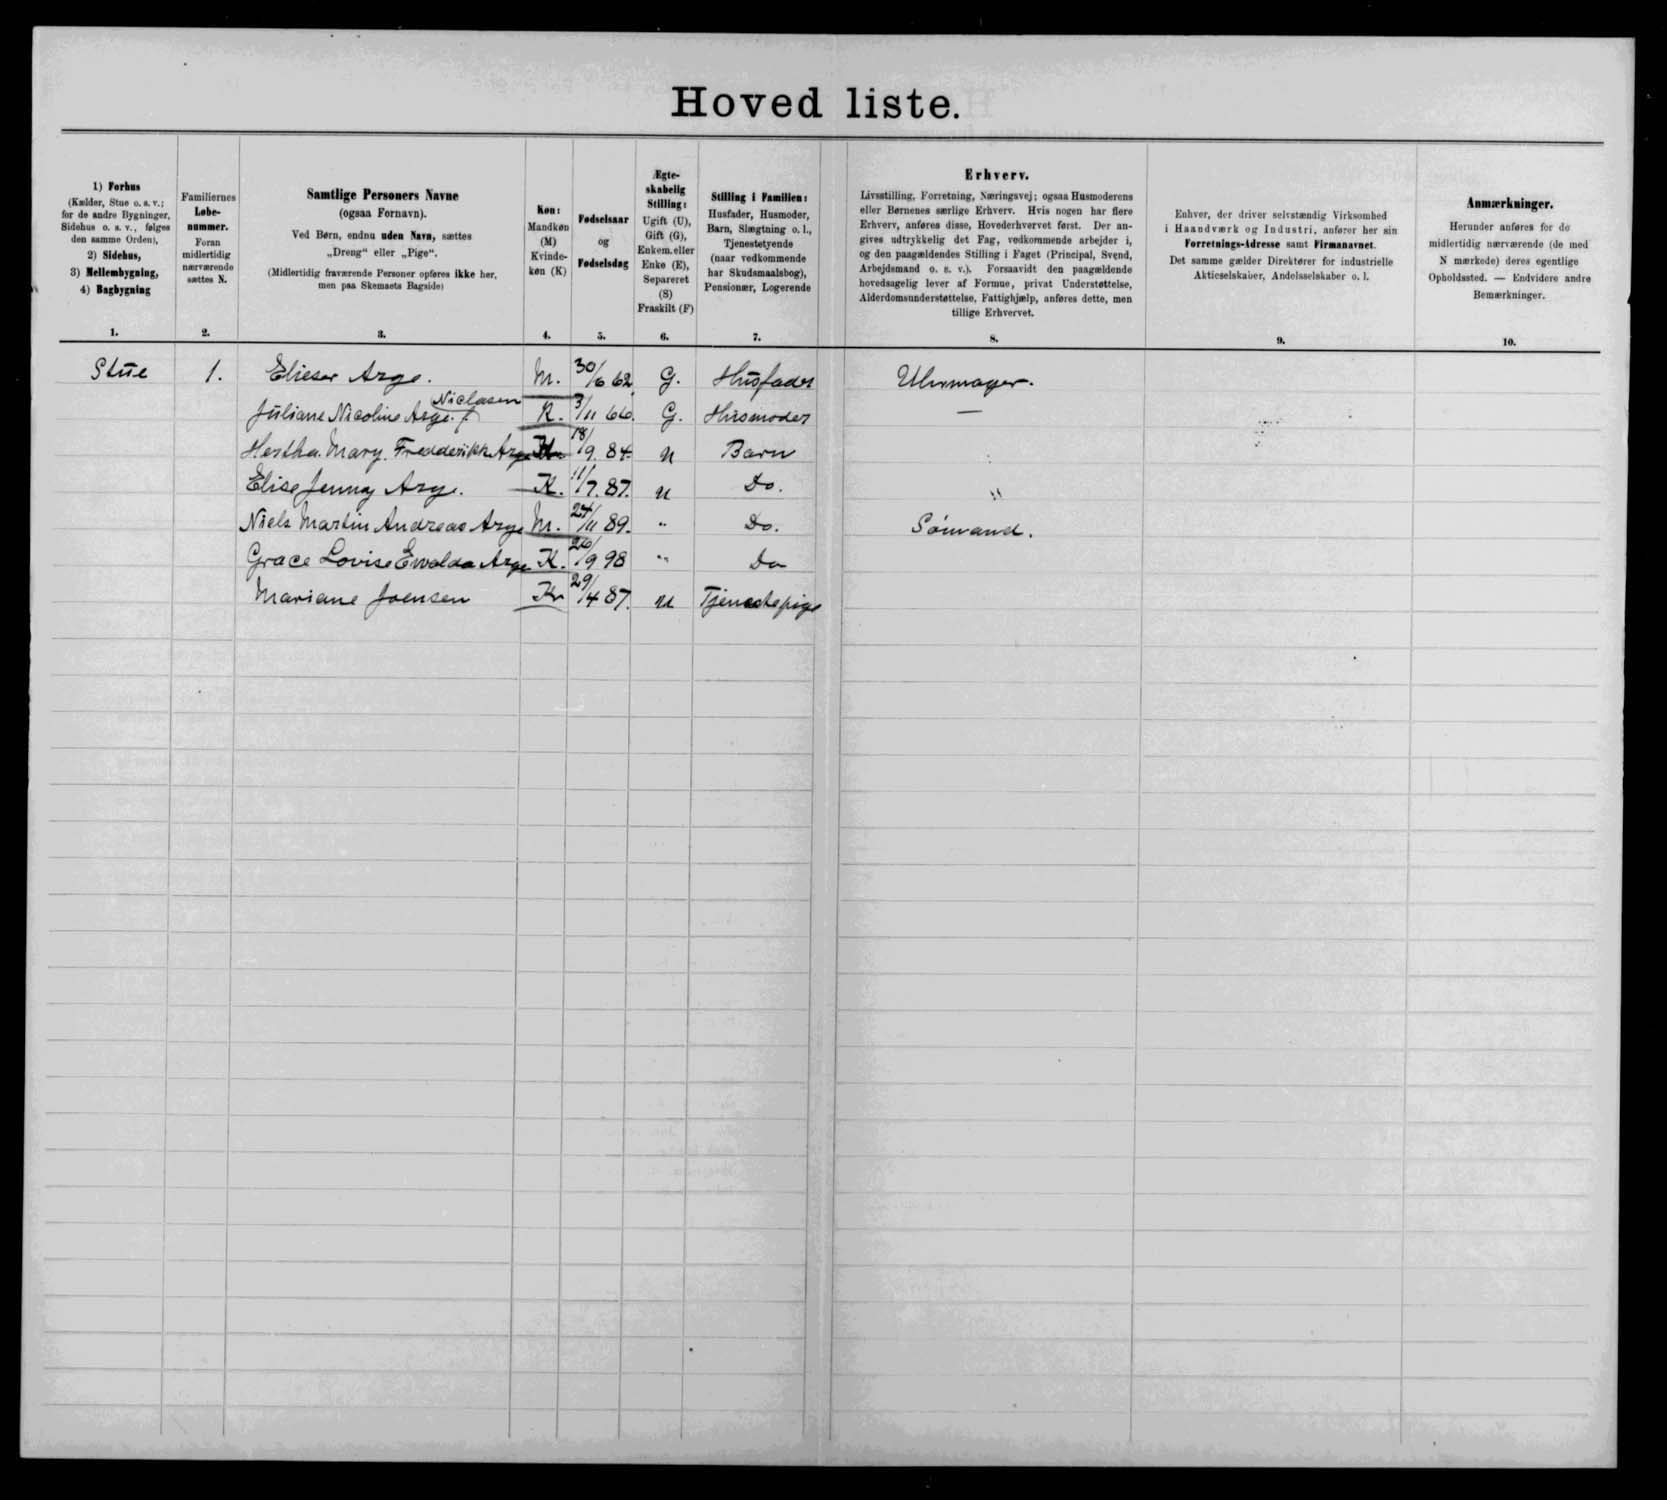 Hoved liste.
1) Forhus
(Kælder, Stue o. s. v.;
for de andre Bygninger,
Sidehus o. s. v., følges
den samme Orden),
2) Sidehus,
3) Mellembygning,
4) Bagbygning
1.
Familiernes
Løbe-
nummer.
Foran
midlertidig
nærværende
sættes N.
2.
Samtlige Personers Navne
(ogsaa Fornavn).
Ved Børn, endnu uden Navn, sættes
„Dreng“ eller „Pige“.
(Midlertidig fraværende Personer opføres ikke her,
men paa Skemaets Bagside)
3.
Køn:
Mandkøn
(M)
Kvinde-
køn (K)
4.
Fødselsaar
og
Fødselsdag
5.
Ægte-
skabelig
Stilling:
Ugift (U),
Gift (G),
Enkem. eller
Enke (E),
Separeret
(S)
Fraskilt (F)
6.
Stilling i Familien:
Husfader, Husmoder,
Barn, Slægtning o. l.,
Tjenestetyende
(naar vedkommende
har Skudsmaalsbog),
Pensionær, Logerende
7.
Erhverv.
Livsstilling, Forretning, Næringsvej; ogsaa Husmoderens
eller Børnenes særlige Erhverv. Hvis nogen har flere
Erhverv, anføres disse, Hovederhvervet først. Der an-
gives udtrykkelig det Fag, vedkommende arbejder i,
og den paagældendes Stilling i Faget (Principal, Svend,
Arbejdsmand o. s. v.). Forsaavidt den paagældende
hovedsagelig lever af Formue, privat Understøttelse,
Alderdomsunderstøttelse, Fattighjælp, anføres dette, men
tillige Erhvervet.
8.
Enhver, der driver selvstændig Virksomhed
i Haandværk og Industri, anfører her sin
Forretnings-Adresse samt Firmanavnet.
Det samme gælder Direktører for industrielle
Aktieselskaber, Andelsselskaber o. l.
9.
Anmærkninger.
Herunder anføres for de
midlertidig nærværende (de med
N mærkede) deres egentlige
Opholdssted. — Endvidere andre
Bemærkninger.
10.
Stue 1. Elieser Arge. M. 30/6 62 G. Husfader Uhrmager.
Niclasen
Juliane Nicoline Arge. f K. 3/11 66. G. Husmoder —
Hertha Mary Fredderikke Arge K 18/9. 84. U Barn
Elise Jenny Arge. K. 11/7. 87. U Do.
Niels Martin Andreas Arge M. 24/11 89. " Do. Sömand.
Grace Lovise Ewalda Arge K. 26/9 98 " Do
Mariane Joensen K 29/4 87. U Tjenestepige